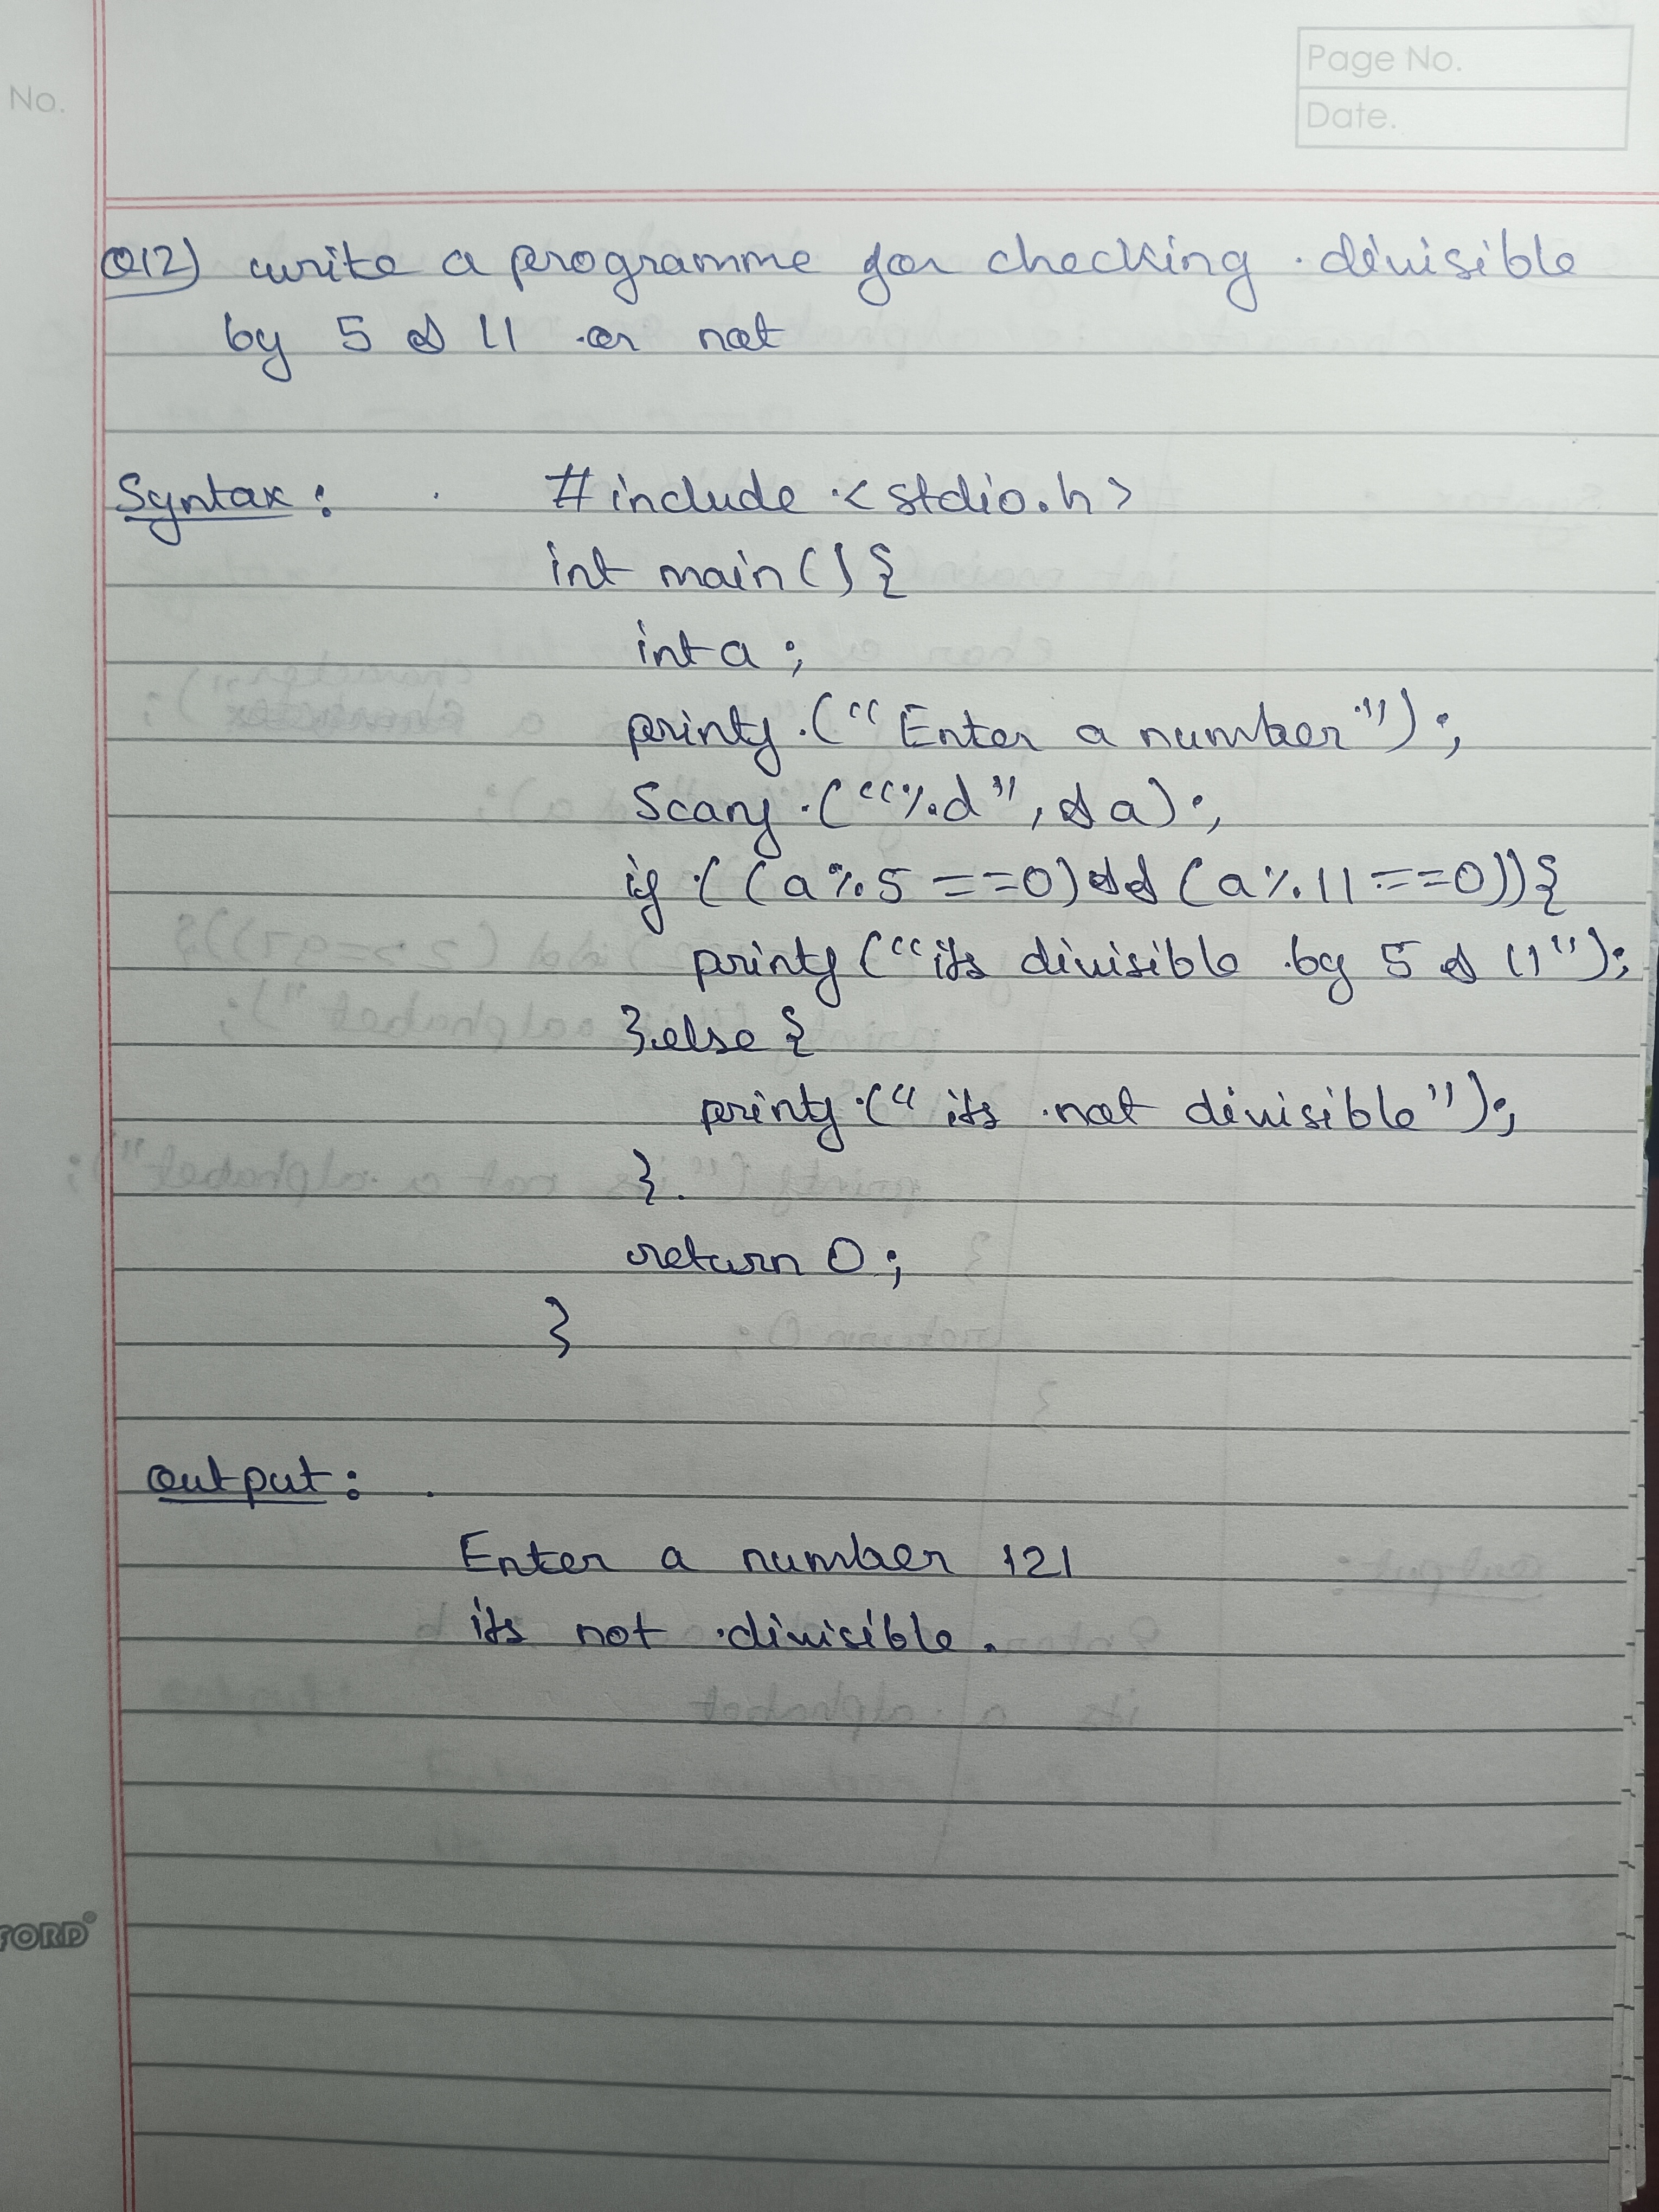 No.
Page No.
Date.
Q12) write a programme for checking divisible
by 5 & 11 or not
Syntax :
#include <stdio.h>
int main() {
int a ;
printf ("Enter a number") ;
Scanf ("%d", &a) ;
if ( (a % 5 == 0) && (a % 11 == 0)) {
printf ("its divisible by 5 & 11") ;
} else {
printf (" its not divisible") ;
}
return 0 ;
}
Output :
Enter a number 121
its not divisible .
FORD